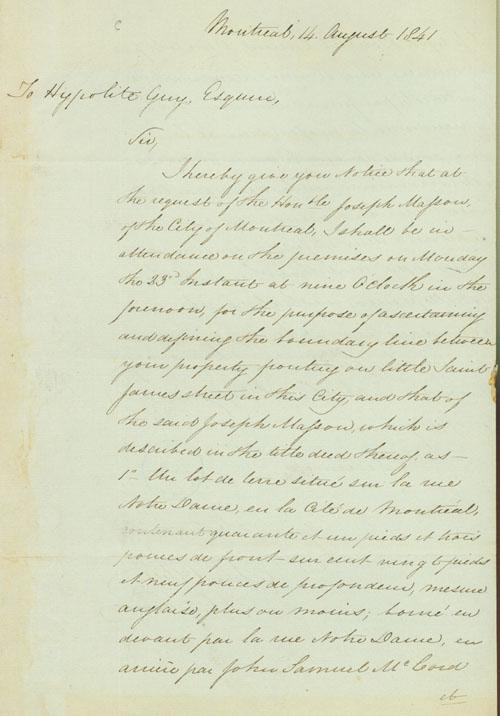 Montreal, 14 August 1841
To Hypolite Guy, Esquire,
Sir,
I hereby give you Notice that at
the request of the Honble Joseph Masson,
of the City of Montreal, I shall be in
attendance on the premises on Monday
the 23rd Instant at nine O'clock in the
forenoon, for the purpose of ascertaining
and defining the boundary line between
your property fronting on little Saint
James street in this City and that of
the said Joseph Masson, which is
described in the title deed thereof, as —
1o Un lot de terre situé sur la rue
Notre Dame, en la Cité de Montréal,
contenant quarante et un pieds et trois
pouces de front sur cent vingt pieds
et neuf pouces de profondeur, mesure
anglaise, plus ou moins; borné en
devant par la rue Notre Dame, en
arrière par John Samuel McCord